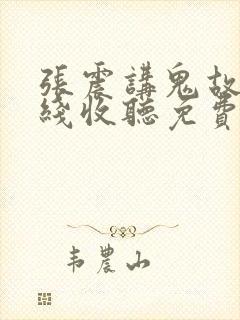 張震講鬼故
綫收聽免費
韦農山